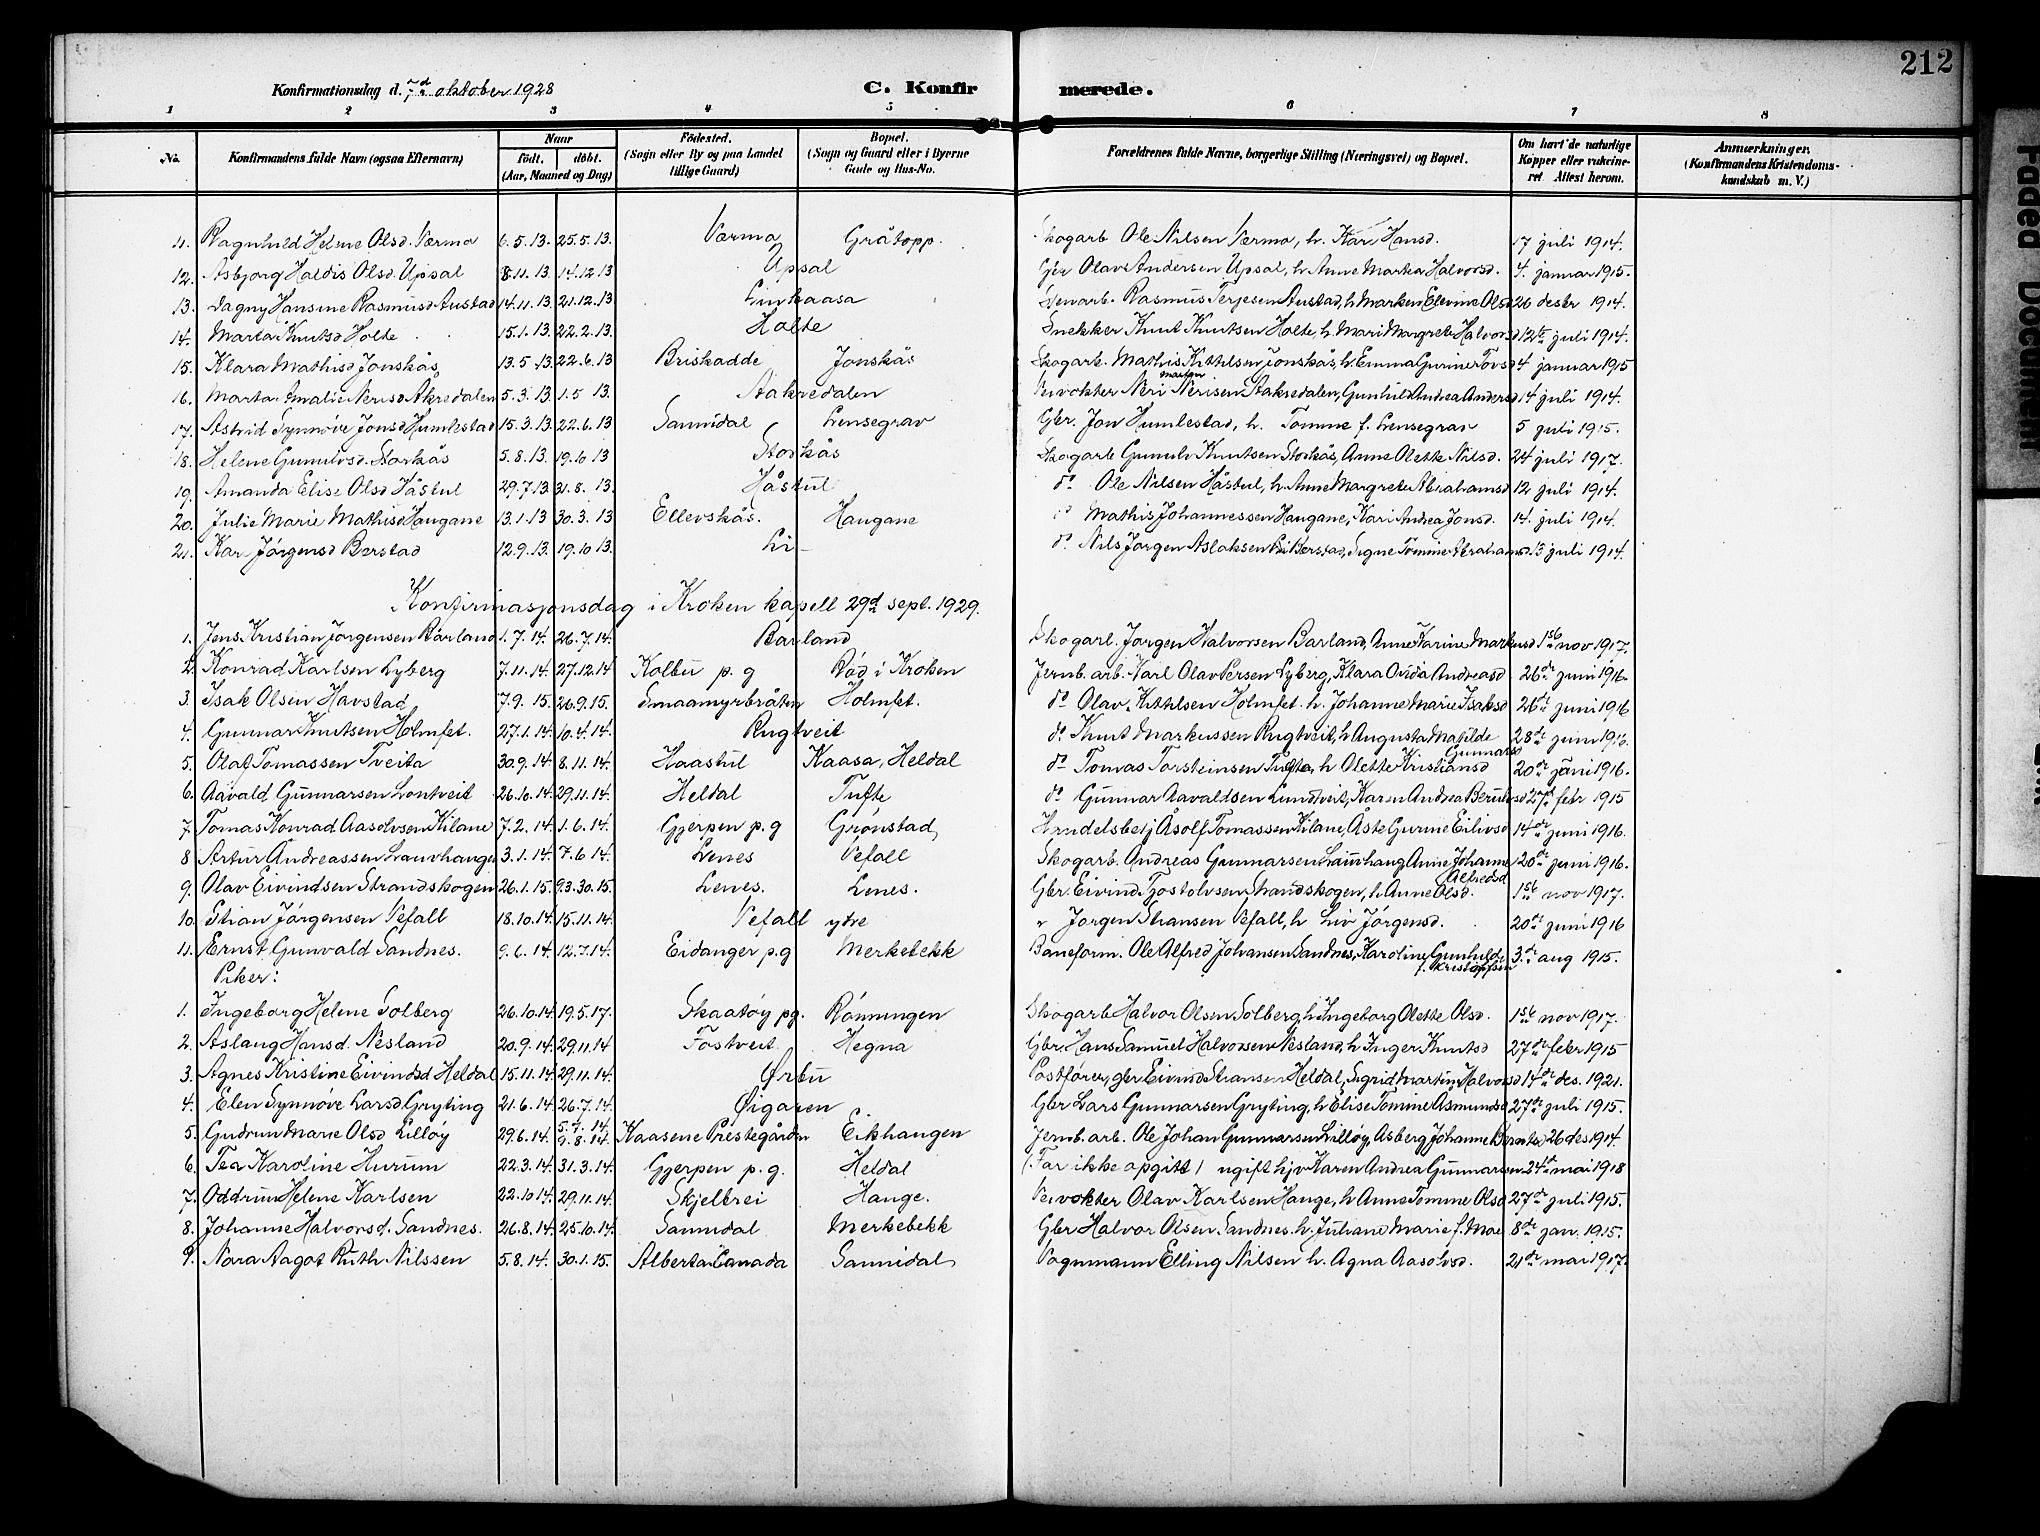 212
Konfirmationsdag d. 7de oktober 1928 C. Konfirmerede.
1 2 3 4 5 6 7 8
No. Konfirmandens fulde Navn (ogsaa Efternavn) Naar født. døbt. (Aar, Maaned og Dag) Födested. (Sogn eller By og paa Landet tillige Gaard) Bopæl. (Sogn og Gaard eller i Byerne Gade og Hus-No. Forældrenes fulde Navne, borgerlige Stilling (Næringsvei) og Bopæl. Om havt de naturlige Kopper eller vakcineret Attest herom. Anmærkninger. (Konfirmandens Kristendomskundskab m. V.)
11. Ragnhild Helene Olsd. Værmo 6.5.13. 25.5.13. Værmo Gråtopp. Skogarb Ole Nilsen Værmo, h. Kari Hansd. 17 juli 1914.
12. Asbjørg Haldis Olsd. Upsal 8.11.13. 14.12.13 Upsal Gbr Olav Andersen Upsal, h Anne Marka Halvorsd. 4. januar 1915.
13. Dagny Hansine Rasmusd Austad 14.11.13. 21.12.13 Linkaasa Rasmus Terjesen Austad, h Marken Elevine Olsd 26 desbr 1914.
14. Marta Knutsd Holte 15.1.13. 22.2.13. Holte Snekker Knut Knutsen Holte, h. Mari Margrete Halvorsd 12te juli 1914.
15. Klara Mathisd Jonskås 13.5.13. 22.6.13 Briskadde Jonskås Skogarb. Mathis Kittilsen Jonskås, h. Emma Gurine Tovsd 4 januar 1915
16. Marta Amalie Nerisd Åkredalen 5.3.13. 1.5 13. Aakredalen Veivokter Neri Nerisen Aakredalen, Gunhild Andrea Andersd 14 juli 1914.
17. Astrid Synnöve Jonsd Humlestad 15.3.13. 22.6.13 Sannidal Lensegrav Gbr. Jon Humlestad, h. Tomine f. Lensegrav 5 juli 1915.
18. Helene Gunulvsd. Storkås 5.8.13. 19.10.13 Storkås Skogarb Gunulv Knutsen Storkås, Anne Olette Nilsd. 24 juli 1917.
19. Amanda Elise Olsd Håstul 29.7.13. 31.8.13. Håstul do Ole Nilsen Håstul, h. Anne Margrete Abrahamsd 12 juli 1914.
20. Julie Marie Mathisd Haugane 13.1.13 30.3.13 Ellevskås. Haugane do Mathis Johannessen Haugane, Kari Andrea Jonsd. 14. juli 1914.
21. Kari Jörgensd Berstad 12.9.13. 19.10.13. Li do Nils Jörgen Aslaksen Berstad, Signe Tomine Abrahamsd. 13 juli 1914.
Konfirmasjonsdag i Kroken kapell 29de sept. 1929.
1. Jens Kristian Jorgensen Barland 1.7.14. 26.7.14. Barland Skogarb. Jorgen Halvorsen Barland, Anne Karine Markusd 1ste nov 1917.
2. Konrad Karlsen Lyberg 7.11.14. 27.12.14 Kolbu p. g Rød i Kroken Jernb. arb. Karl Olav Persen Lyberg, Klara Ovidia Andreasd 26de juni 1916.
3. Isak Olsen Havstad 7.9.15. 26.9.15. Smaamyrbråten Holmfet. do Olav Kittilsen Holmfet. h. Johanne Marie Isaksd 26de juni 1916
4. Gunnar Knutsen Holmfet. 27.1.14. 10.4.14. Rugtveit do Knut Markussen Rugtveit, h Augusta Matilde Gunnarsd 28de juni 1916.
5. Olaf Tomassen Tveita 30.9.14. 8.11.14. Haastul Kaasa, Heldal do Tomas Torsteinsen Tufte, h Olette Kristiansd 20de juni 1916.
6. Aavald Gunnarsen Lontveit 26.10.14. 29.11.14. Heldal Tufte do Gunnar Aavaldsen Lundtveit, Karen Andrea Berulvsd 27de febr 1915
7. Tomas Konrad Aasolvsen Kilane 7.2.14. 1.6.14. Gjerpen p. g Grønstad Handelsbetj Åsolf Tomassen Kilane, Åste Gurine Eilivsd 14de juni 1916.
8 Artur Andreassen Lauvhaugen 3.1.14. 7.6.14. Lenes Vefall Skogarb. Andreas Gunnarsen Lauvhaug Anne Johanne Alfredsd 20de juni 1916.
9. Olav Eivindsen Strandskogen 26.1.15. 93.30.15. Lenes. Lenes. Gbr. Eivind Tjostolvsen Strandskogen, h. Anne Olsd. 1ste nov 1917.
10. Stian Jörgensen Vefall 18.10.14. 15.11.14. Vefall ytre " Jörgen Stiansen Vefall, h Liv Jörgensd. 20de juni 1916
11. Ernst Gunvald Sandnes. 9.6.14. 12.7.14. Eidanger p. g Merkebekk Baneform. Ole Alfred Johansen Sandnes, Karoline Gunhild f. Kristoffsen 3de aug 1915.
Piker:
1. Ingeborg Helene Solberg 26.10.14. 19.5.17. Skaatøy pg. Rønningen Skogarb Halvor Olsen Solberg, h Ingeborg Olette Olsd. 1ste nov 1917.
2. Aslaug Hansd. Nesland 20.9.14. 29.11.14 Fostveit Hegna Gbr. Hans Samuel Halvorsen Nesland, h Inger Knutsd 27de febr 1915
3. Agnes Kristine Eivindsd Heldal 15.11.14. 29.11.14. Ørbu Postfører, gbr Eivind Stiansen Heldal, Sigrid Martine Halvorsd 14de des. 1921.
4. Elen Synnöve Larsd Gryting 21.6.14. 26.7.14. Øigaren Gbr Lars Gunnarsen Gryting, h Elise Tomine Asmundsd 27de juli 1915.
5. Gudrun Marie Olsd Lilløy 29.6.14. 5.7.14. 9.8.14. Kaasene Prestegården Eikhaugen Jernb. arb. Ole Johan Gunnarsen Lilløy, Asberg Johanne 26 des 1914.
6. Tea Karoline Hurum 22.3.14. 31.3.14. Gjerpen p. g. Heldal (Far ikke opgitt) ugift hjv. Karen Andrea Gunnarsen 24de mai 1918
7. Oddrun Helene Karlsen 22.10.14. 29.11.14. Skjelbrei Hauge. Veivokter Olav Karlsen Hauge, h Anne Tomine Olsd 27de juli 1915.
8. Johanne Halvorsd. Sandnes. 26.8.14. 25.10.14. Sannidal Merkebekk Gbr Halvor Olsen Sandnes. h. Juliane Marie f. Moe 8de jan. 1915.
9. Nora Aagot Ruth Nilssen 5.8.14. 30.1.15. Alberta Canada Sannidal Vognmann Elling Nilsen h. Agna Aasolvsd. 21de mai 1917.
Faded Document